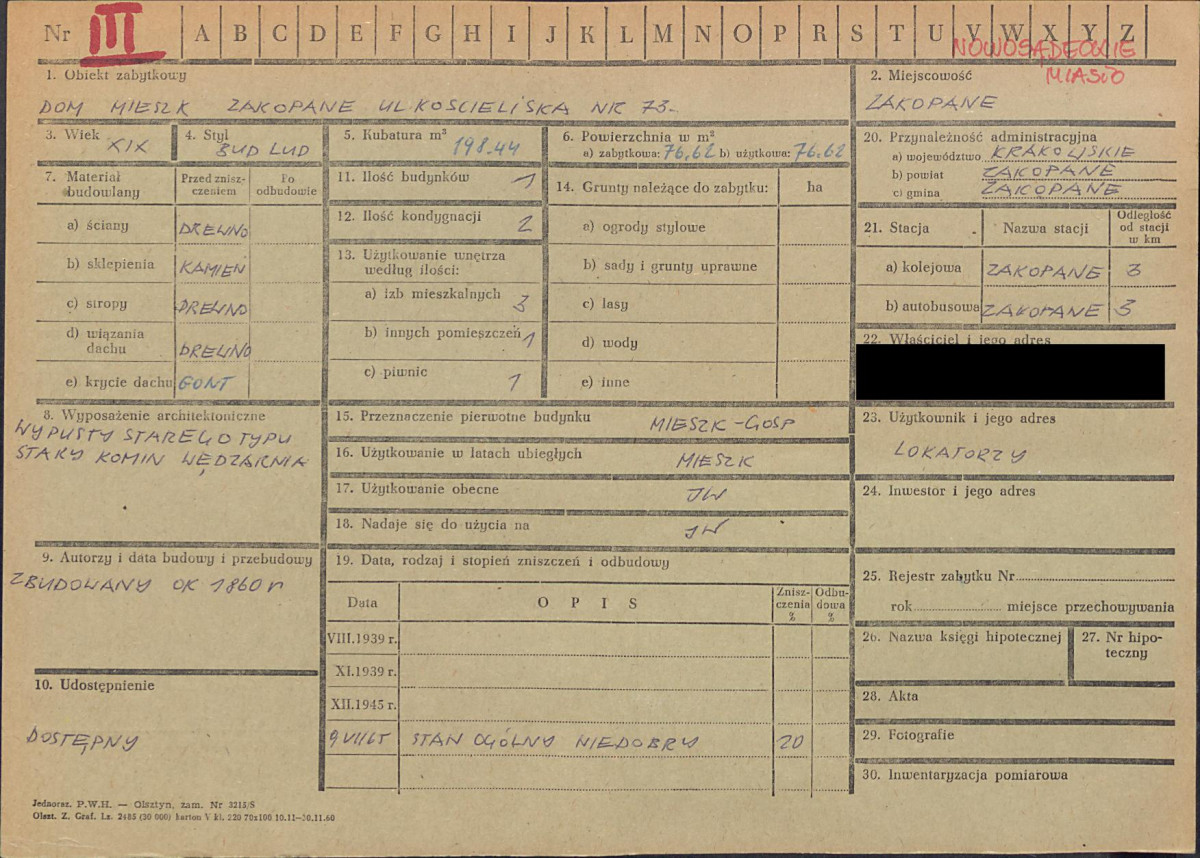 Nr III A B C D E F G H I J K L M N O P R S T U V W X Y Z
NOWOSĄDECKIE
MIASTO
1. Obiekt zabytkowy
DOM MIESZK ZAKOPANE UL KOŚCIELISKA NR 73.
2. Miejscowość
ZAKOPANE
3. Wiek
XIX
4. Styl
BUD LUD
5. Kubatura m³
198.44
6. Powierzchnia w m²
a) zabytkowa: 76,62 b) użytkowa: 76.62
7. Materiał budowlany
Przed zniszczeniem
Po odbudowie
a) ściany DREWNO
b) sklepienia KAMIEN
c) stropy DREWNO
d) wiązania dachu DREWNO
e) krycie dachu GONT
8. Wyposażenie architektoniczne
WYPUSTY STAREGO TYPU
STARY KOMIN WĘDZARNIA
9. Autorzy i data budowy i przebudowy
ZBUDOWANY OK 1860 r
10. Udostępnienie
DOSTĘPNY
11. Ilość budynków 1
12. Ilość kondygnacji 2
13. Użytkowanie wnętrza
według ilości:
a) izb mieszkalnych 3
b) innych pomieszczeń 1
c) piwnic 1
14. Grunty należące do zabytku: ha
a) ogrody stylowe
b) sady i grunty uprawne
c) lasy
d) wody
e) inne
15. Przeznaczenie pierwotne budynku MIESZK-GOSP
16. Użytkowanie w latach ubiegłych MIESZK
17. Użytkowanie obecne JW
18. Nadaje się do użycia na JW
19. Data, rodzaj i stopień zniszczeń i odbudowy
Data OPIS Zniszczenia % Odbudowa %
VIII.1939 r.
XI.1939 r.
XII.1945 r.
9 VII 65 STAN OGÓLNY NIEDOBRY 20
20. Przynależność administracyjna
a) województwo KRAKOWSKIE
b) powiat ZAKOPANE
c) gmina ZAKOPANE
21. Stacja Nazwa stacji Odległość od stacji w km
a) kolejowa ZAKOPANE 3
b) autobusowa ZAKOPANE 3
22. Właściciel i jego adres
23. Użytkownik i jego adres
LOKATORZY
24. Inwestor i jego adres
25. Rejestr zabytku Nr
rok miejsce przechowywania
26. Nazwa księgi hipotecznej
27. Nr hipoteczny
28. Akta
29. Fotografie
30. Inwentaryzacja pomiarowa
Jednoraz. P.W.H. — Olsztyn, zam. Nr 3215/S
Olszt. Z. Graf. Lz. 2485 (30 000) karton V kl. 220 70x100 10.11–30.11.60